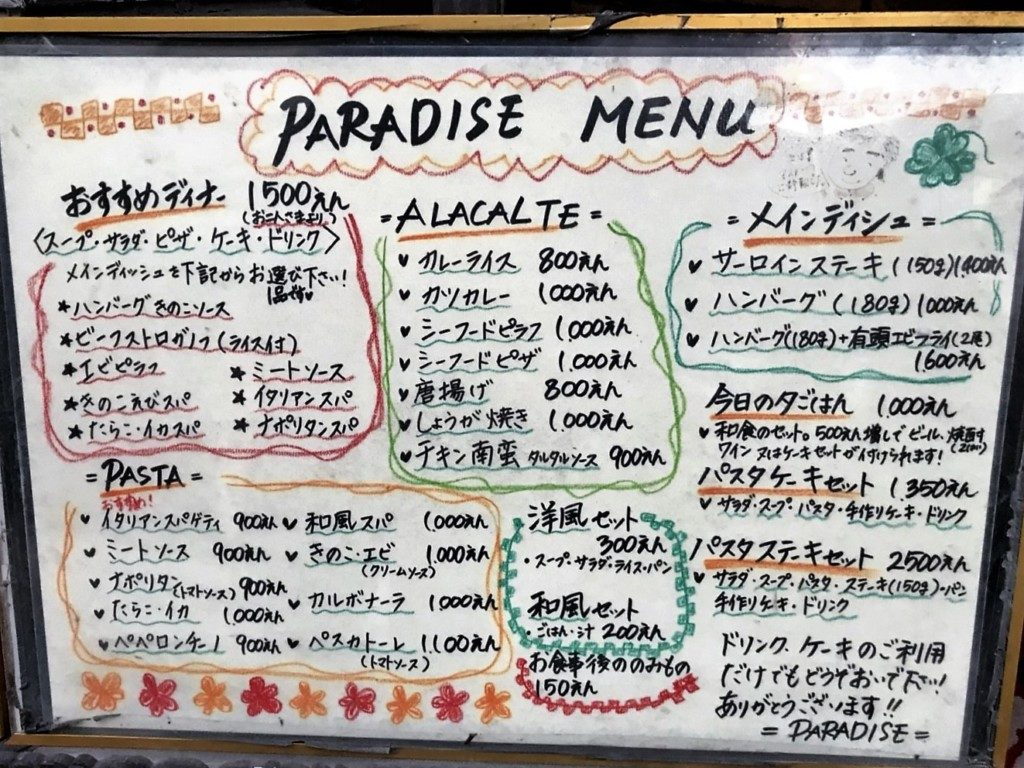 PARADISE MENU
おすすめディナー 1500えん
(おこんさまより)
〈スープ・サラダ・ピザ・ケーキ・ドリンク〉
メインディッシュを下記からお選び下さい!
1品ずつ
★ハンバーグきのこソース
★ビーフストロガノフ(ライス付)
★エビピラフ
★きのこえびスパ
★たらこ・イカスパ
★ミートソース
★イタリアンスパ
★ナポリタンスパ
=PASTA=
おすすめ!
♥イタリアンスパゲティ 900えん
♥ミートソース 900えん
♥ナポリタン(トマトソース) 900えん
♥たらこ・イカ 1.000えん
♥ペペロンチーノ 900えん
♥和風スパ 1.000えん
♥きのこ・エビ 1.000えん
(クリームソース)
♥カルボナーラ 1.000えん
♥ペスカトーレ 1.100えん
(トマトソース)
=ALACALTE=
♥カレーライス 800えん
♥カツカレー 1.000えん
♥シーフードピラフ 1.000えん
♥シーフードピザ 1.000えん
♥唐揚げ 800えん
♥しょうが焼き 1.000えん
♥チキン南蛮 タルタルソース 900えん
洋風セット
300えん
・スープ・サラダ・ライス・パン
和風セット
・ごはん・汁 200えん
お食事後ののみもの
150えん
=メインディシュ=
♥サーロインステーキ(150g)1,400えん
♥ハンバーグ(180g) 1.000えん
♥ハンバーグ(180g)+有頭エビフライ(2尾)
1.600えん
今日の夕ごはん 1,000えん
♥和食のセット。500えん増しでビール、焼酎
ワイン 又はケーキセットが付けられます!
パスタケーキセット 1.350えん
♥サラダ・スープ・パスタ・手作りケーキ・ドリンク
パスタステーキセット 2500えん
♥サラダ・スープ・パスタ・ステーキ(150g)・パン
手作りケーキ・ドリンク
ドリンク、ケーキのご利用
だけでもどうぞおいで下さい!
ありがとうございます!!
=PARADISE=